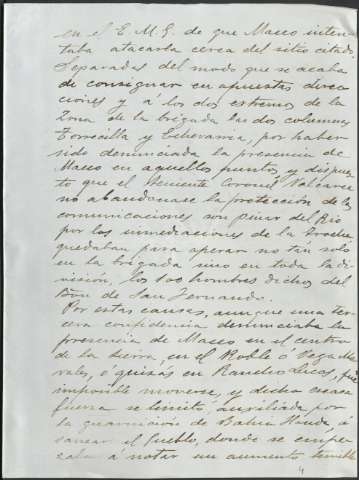 en el E. M. G. de que Maceo inten-
taba atacarla cerca del sitio citado.
Separadas del modo que se acaba
de consignar en opuestas direc-
ciones y á los dos estremos de la
Zona de la brigada las dos columnas
Torrecilla y Echevarria, por haber
sido denunciada la presencia de
Maceo en aquellos puntos, y dispues-
to que el Teniente Coronel Valcarce
no abandonase la protección de las
comunicaciones con Pinar del Rio
por las inmediaciones de la Trocha
quedaban para operar no tan solo
en la brigada sino en toda la di-
visión, los 100 hombres dichos del
Bón de San Fernando.
Por estas causas, aunque una ter-
cera confidencia denunciaba la
presencia de Maceo en el centro
de la sierra, en el Roble ó Vega Mo-
rales, ó quizás en Rancho Lucas, fué
imposible moverse, y dicha escasa
fuerza se limitó, auxiliada por
la guarnición de Bahia Honda, á
sanear el Pueblo, donde se empe-
zaba á notar un aumento temible